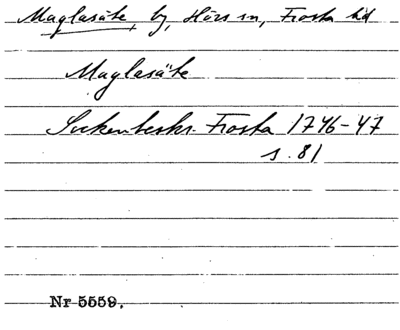 Maglasäte, by, Hörs sn, Frosta hd
Maglasäte
Sockenbeskr. Frosta 1746-47
s. 81
Nr 5559.